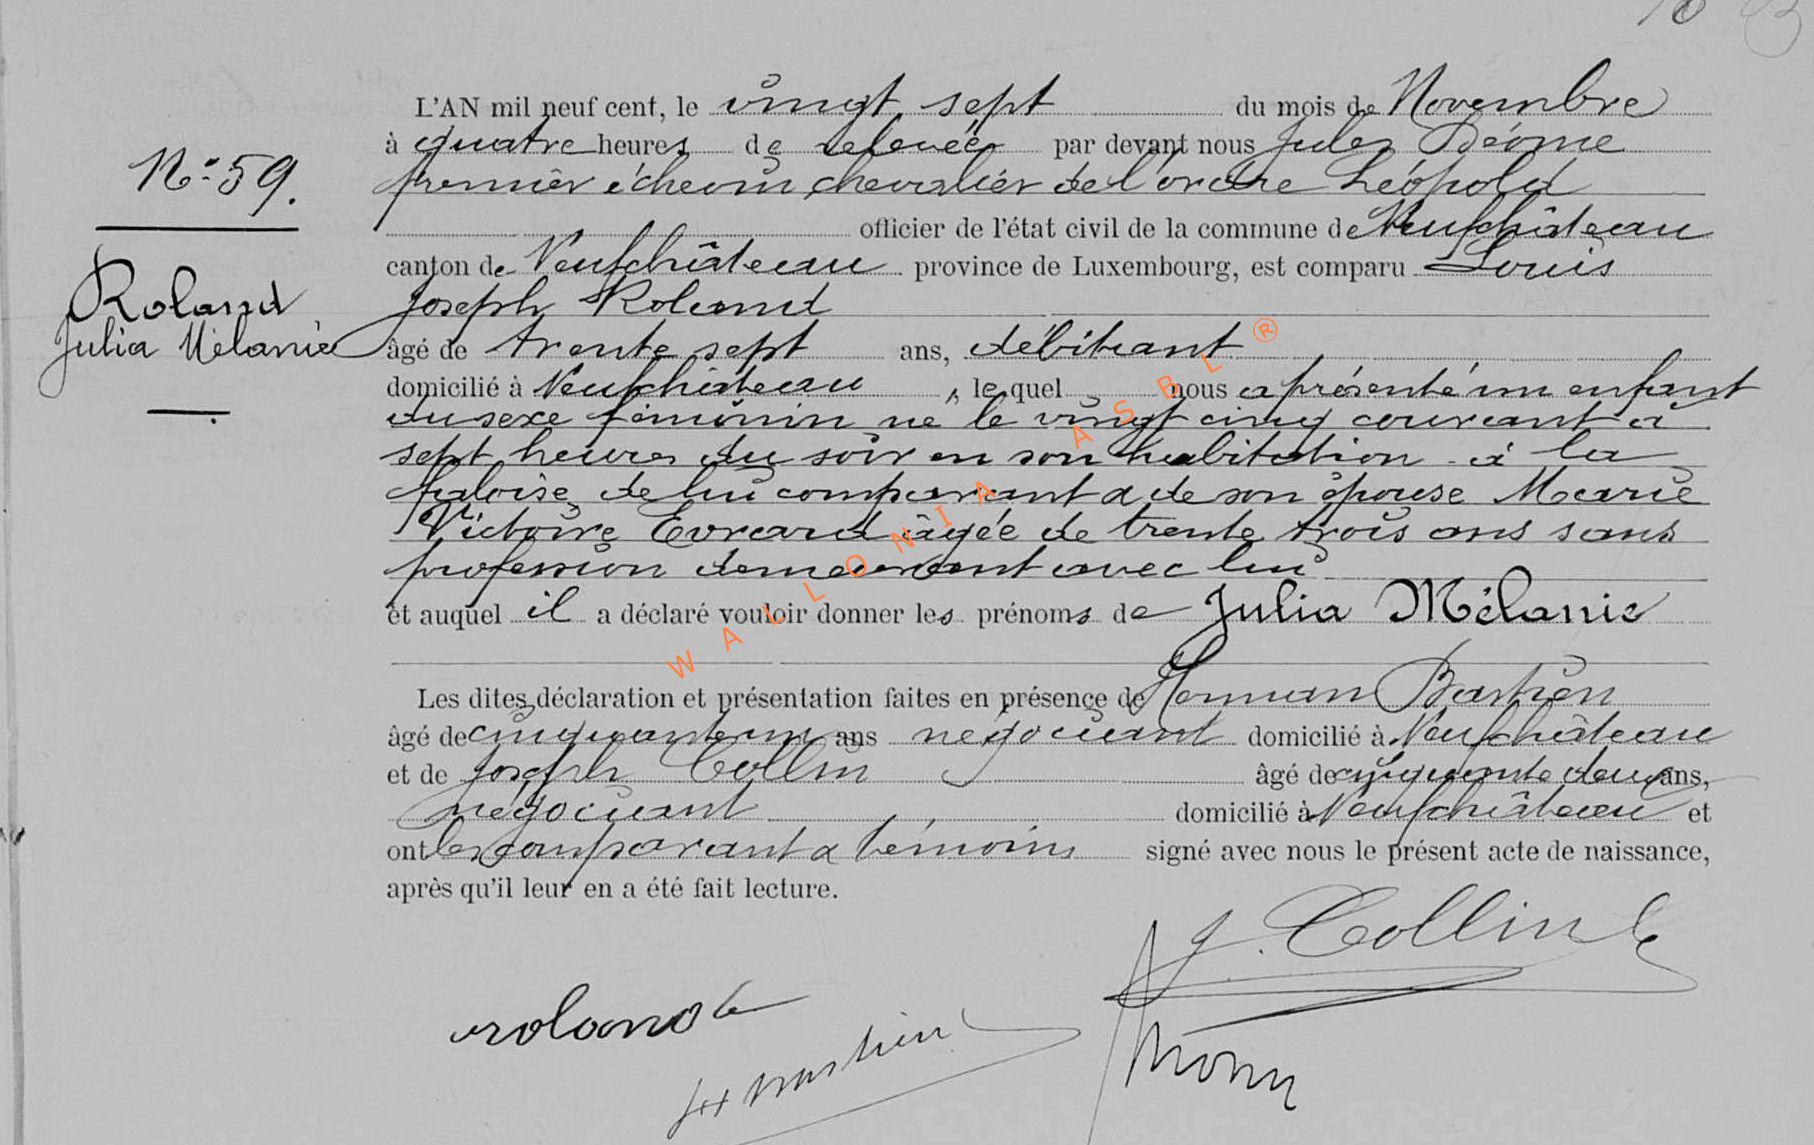 N° 59.
Roland
Julia Mélanie
L'AN mil neuf cent, le vingt sept du mois de Novembre
à quatre heures de relevée par devant nous Jules
premier échevin, chevalier de l'ordre Léopold
officier de l'état civil de la commune de Neufchâteau
canton de Neufchâteau province de Luxembourg, est comparu Louis
Joseph Roland
âgé de trente sept ans, débitant
domicilié à Neufchâteau, lequel nous a présenté un enfant
du sexe féminin né le vingt cinq courant à
sept heures du soir en son habitation à la
de lui comparant & de son épouse Marie
Victoire Evrard âgée de trente trois ans sans
profession demeurant avec lui
et auquel il a déclaré vouloir donner les prénoms de Julia Mélanie
Les dites déclaration et présentation faites en présence de Herman Bastien
âgé de cinquante un ans négociant domicilié à Neufchâteau
et de Joseph Collin âgé de cinquante deux ans,
négociant domicilié à Neufchâteau et
ont les comparant & témoins signé avec nous le présent acte de naissance,
après qu'il leur en a été fait lecture.
J. Collin
roland
H Bastien
WALLONIA ASBL ®